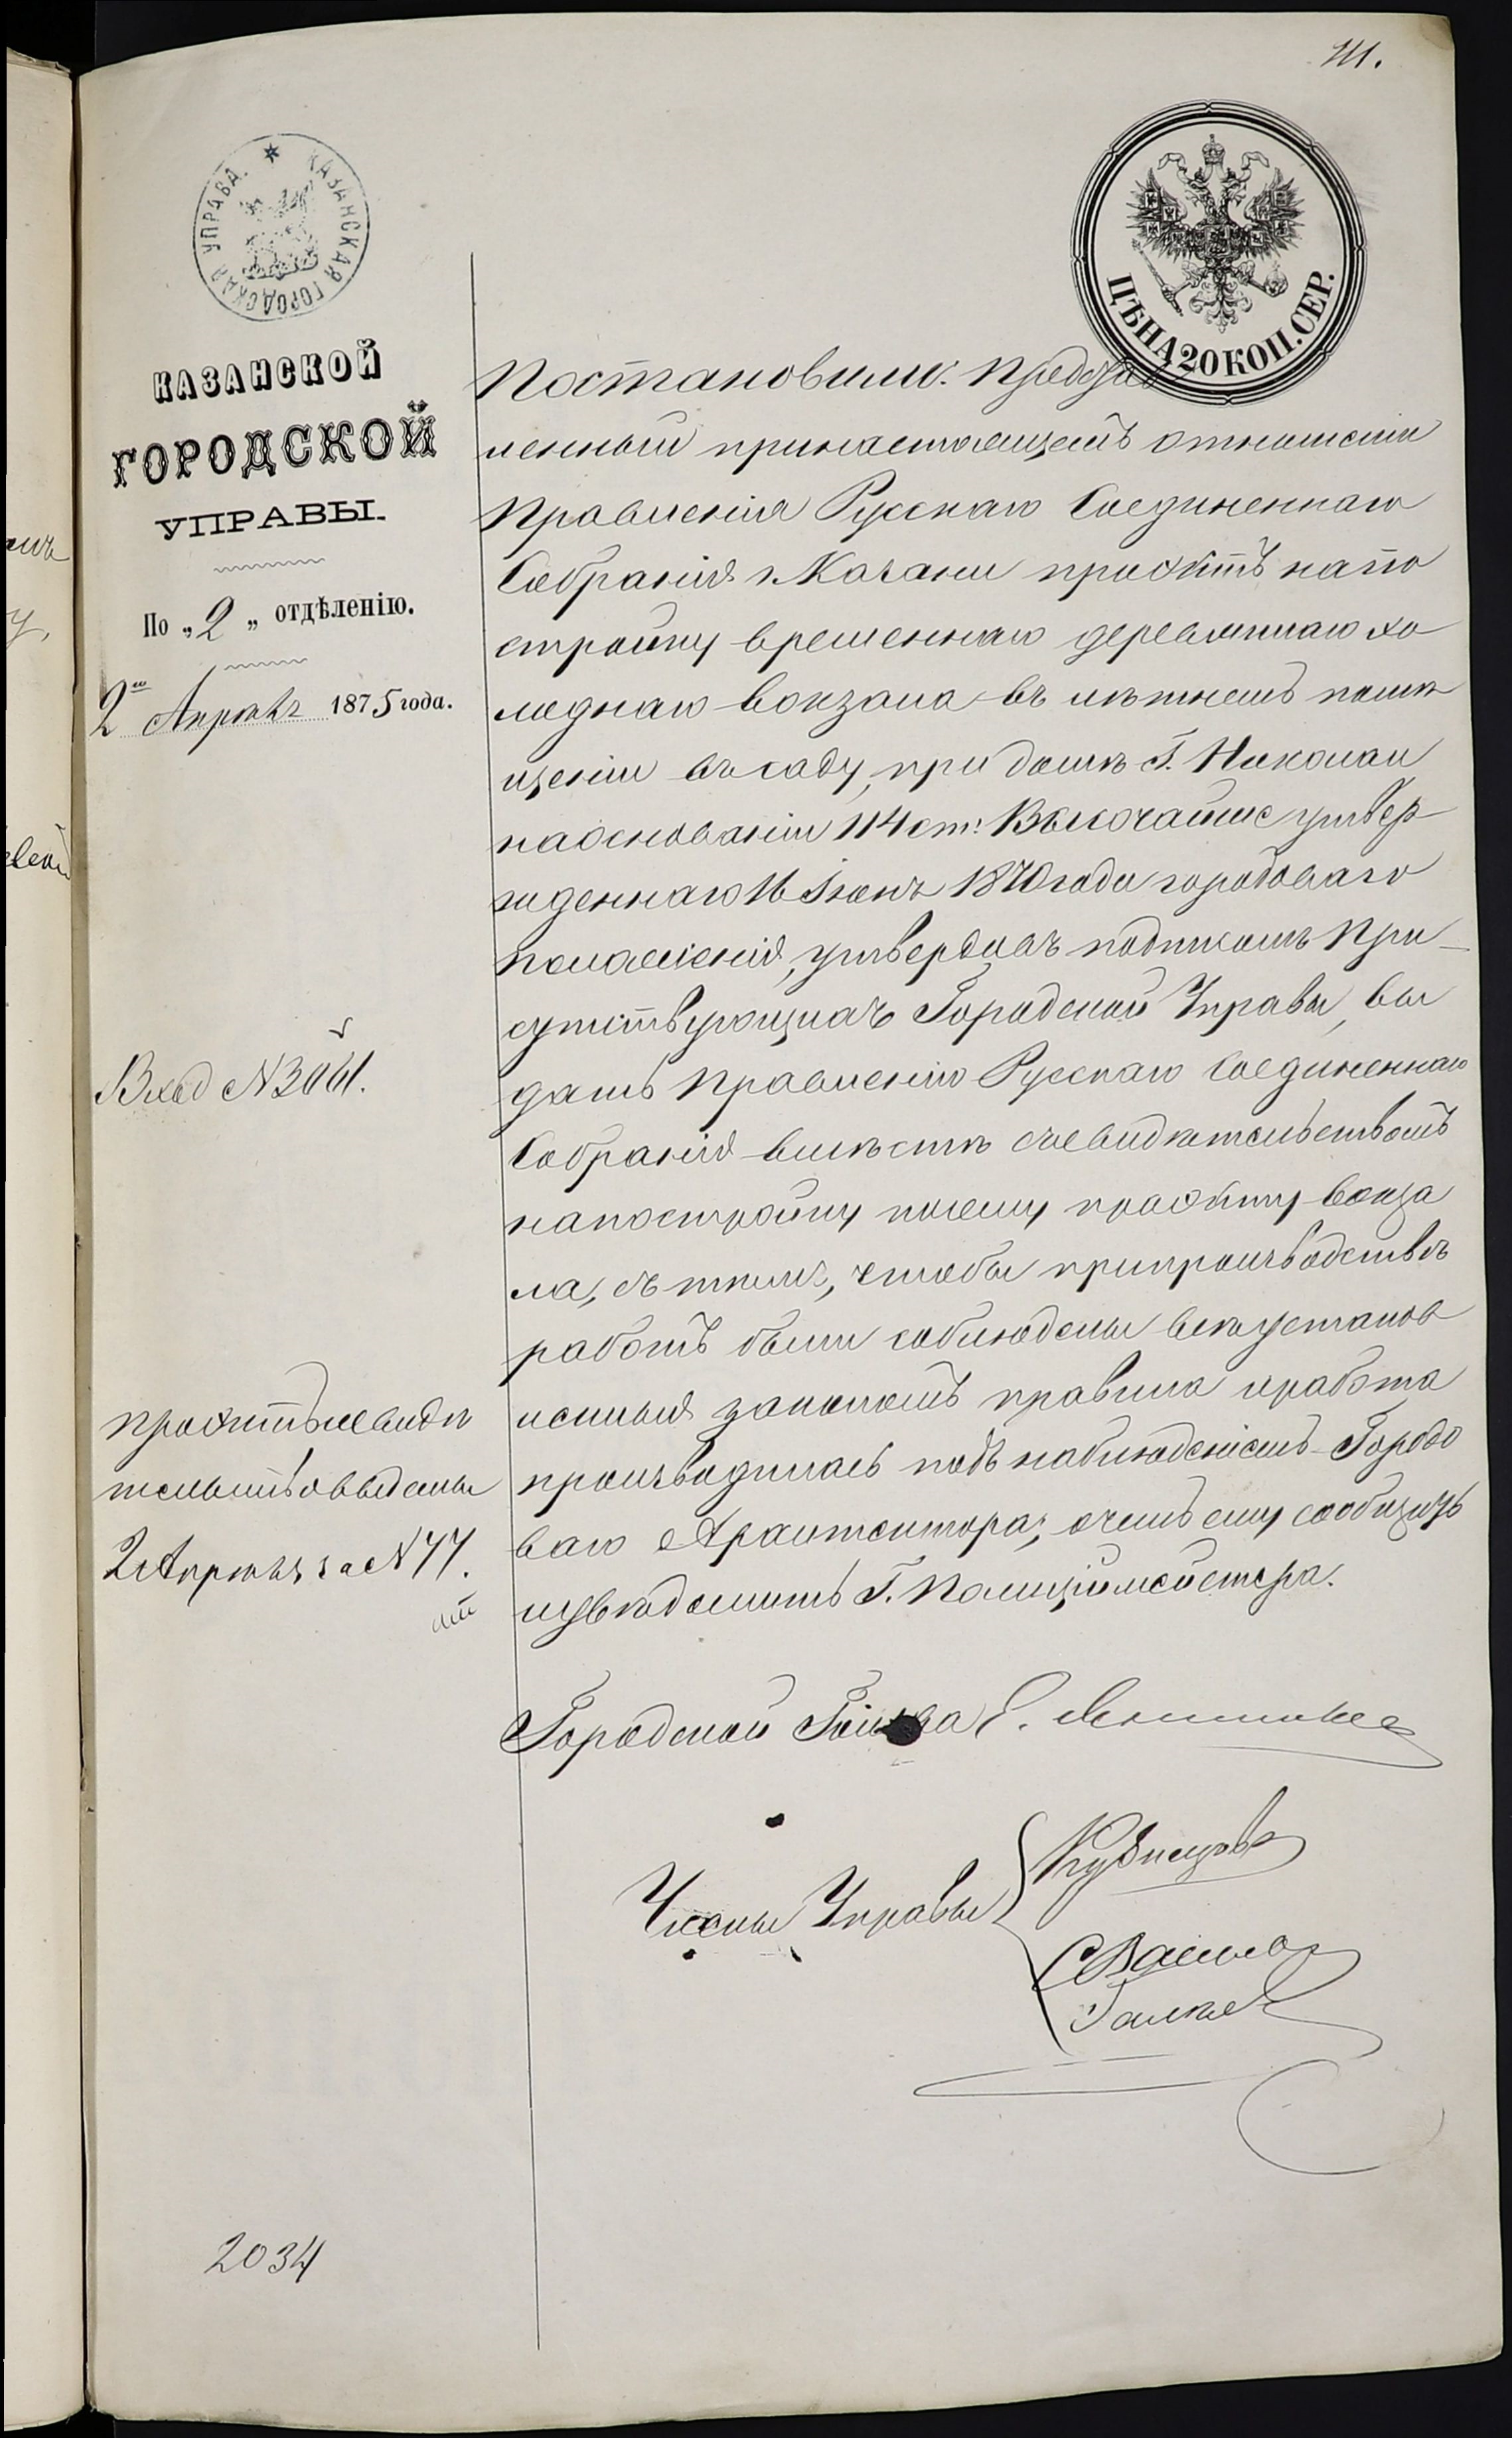 111.
КАЗАНСКАЯ ГОРОДСКАЯ УПРАВА.
ЦѢНА 20 КОП. СЕР.
КАЗАНСКОЙ
ГОРОДСКОЙ
УПРАВЫ.
По „2„ отдѣленію.
2го Апрѣля 1875 года.
Вход №3061.
Проэктъ и свидѣ
тельство выданы
2 Апрѣля за №77.
Постановили: Представ
ленный при настоящемъ отношеніи
Правленія Русскаго Соединеннаго
Собранія г. Казани проэктъ на по
стройку временнаго деревяннаго хо
лоднаго вокзала въ лѣтнемъ помѣ
щеніи въ саду, при домѣ Г. Николаи
на основаніи 114 ст. Высочайше утвер
жденнаго 16 Іюня 1870 года городоваго
положенія, утвердивъ подписомъ При-
сутствующихъ Городской Управы, вы
дать Правленію Русскаго Соединеннаго
Собранія вмѣстѣ съ свидѣтельствомъ
на постройку по сему проэкту вокза
ла, съ тѣмъ, чтобы при производствѣ
работъ были соблюдены всѣ установ
ленныя закономъ правила и работа
производилась подъ наблюденіемъ Городо
ваго Архитектора, о чемъ ему сообщить
и увѣдомить Г. Полиціймейстера.
Городской Голова Е.
Члены Управы
Кузнецовъ
2034